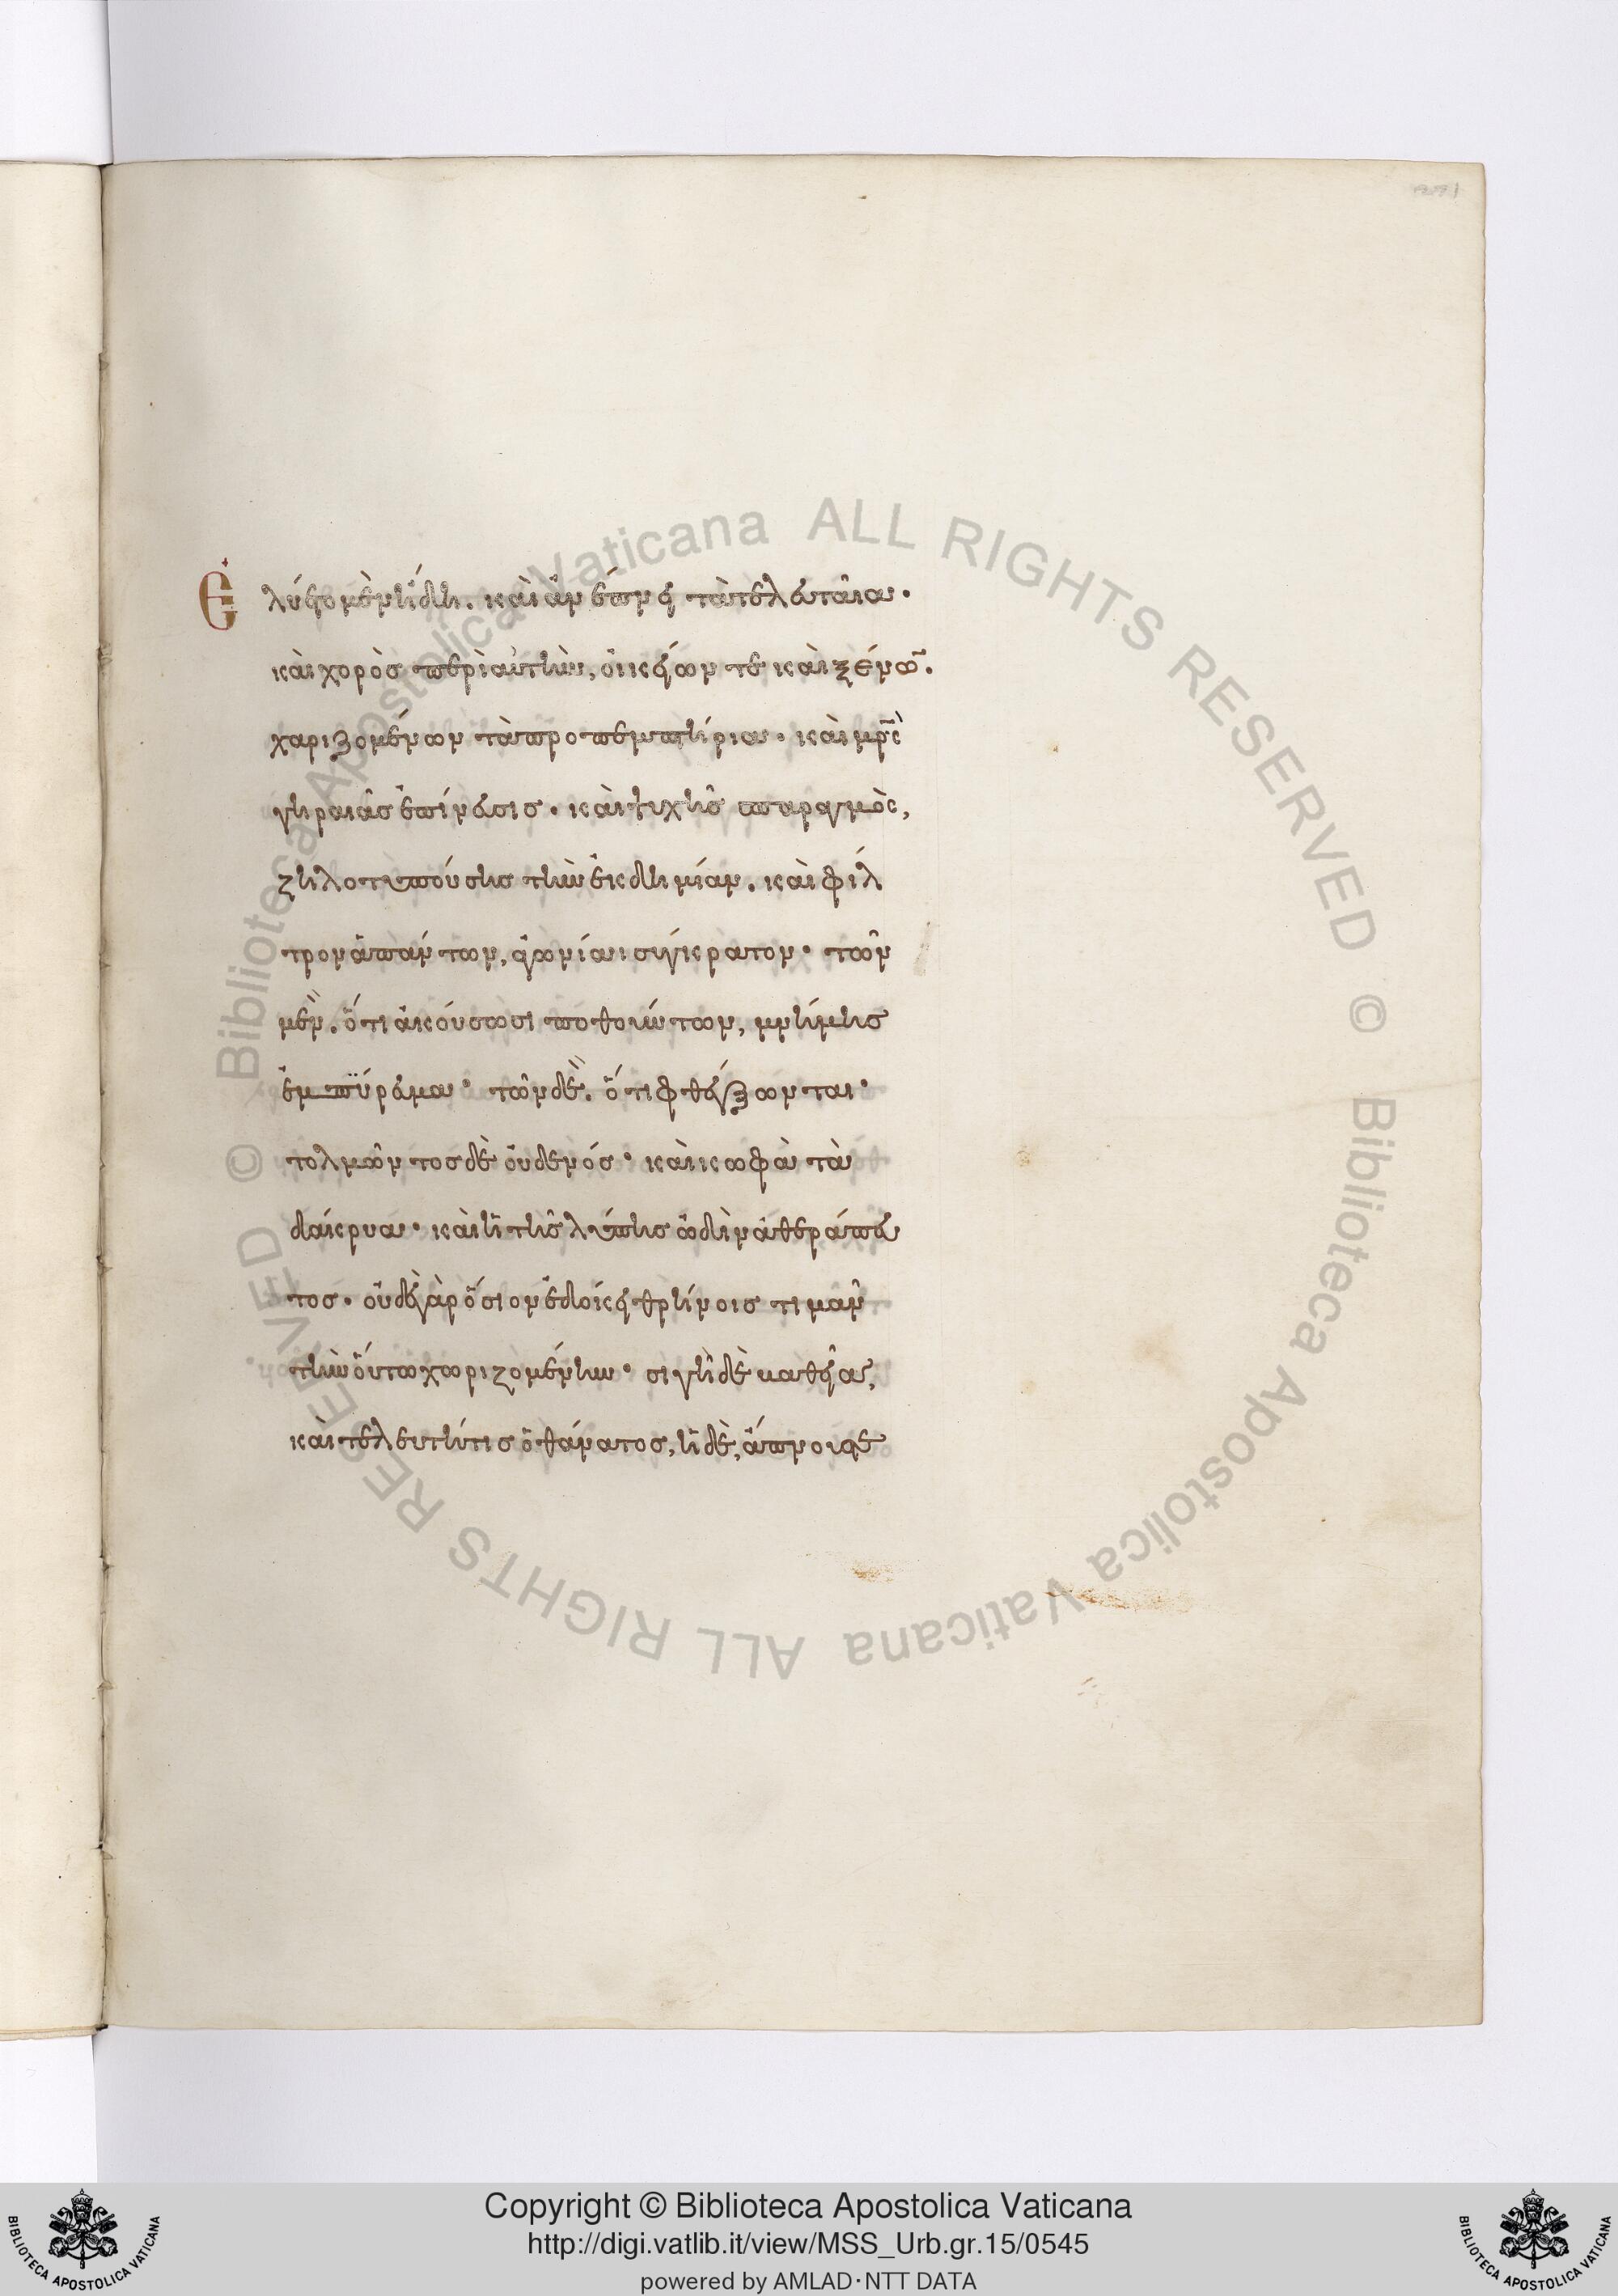 Ἐλύετο μὲν ἤδη. καὶ ἀνέπνει τὰ τελευταῖα·
καὶ χορὸς περὶ αὐτὴν, οἰκείων τε καὶ ξένων.
χαριζομένων τὰ προπεμπτήρια· καὶ μρ̅ς
γηραιᾶς ἐπίνευσις· καὶ ψυχῆς σπαραγμὸς,
ζηλοτυπούσης τὴν ἐκδημίαν. καὶ φίλ
τρον ἁπάντων, ἀγωνίαι σύγκρατον· τῶν
μὲν. ὅτι ἀκούσωσι ποθούντων, μνήμης
ἐμπύρευμα· τῶν δὲ. ὅτι φθέγξωνται·
τολμῶντος δὲ οὐδενός· καὶ κωφὰ τὰ
δάκρυα· καὶ ἡ τῆς λύπης ὠδὶν ἀθεράπευ
τος· οὐδὲ γὰρ ὅσιον ἐδόκει θρήνοις τιμᾶν
τὴν οὕτω χωριζομένην· σιγὴ δὲ καθεῖα,
καὶ τελευτή τις ὁ θάνατος, ἡ δὲ, ἄπνοις
Copyright © Biblioteca Apostolica Vaticana
http://digi.vatlib.it/view/MSS_Urb.gr.15/0545
powered by AMLAD·NTT DATA
BIBLIOTECA APOSTOLICA VATICANA
BIBLIOTECA APOSTOLICA VATICANA
© Biblioteca Apostolica Vaticana ALL RIGHTS RESERVED © Biblioteca Apostolica Vaticana ALL RIGHTS RESERVED